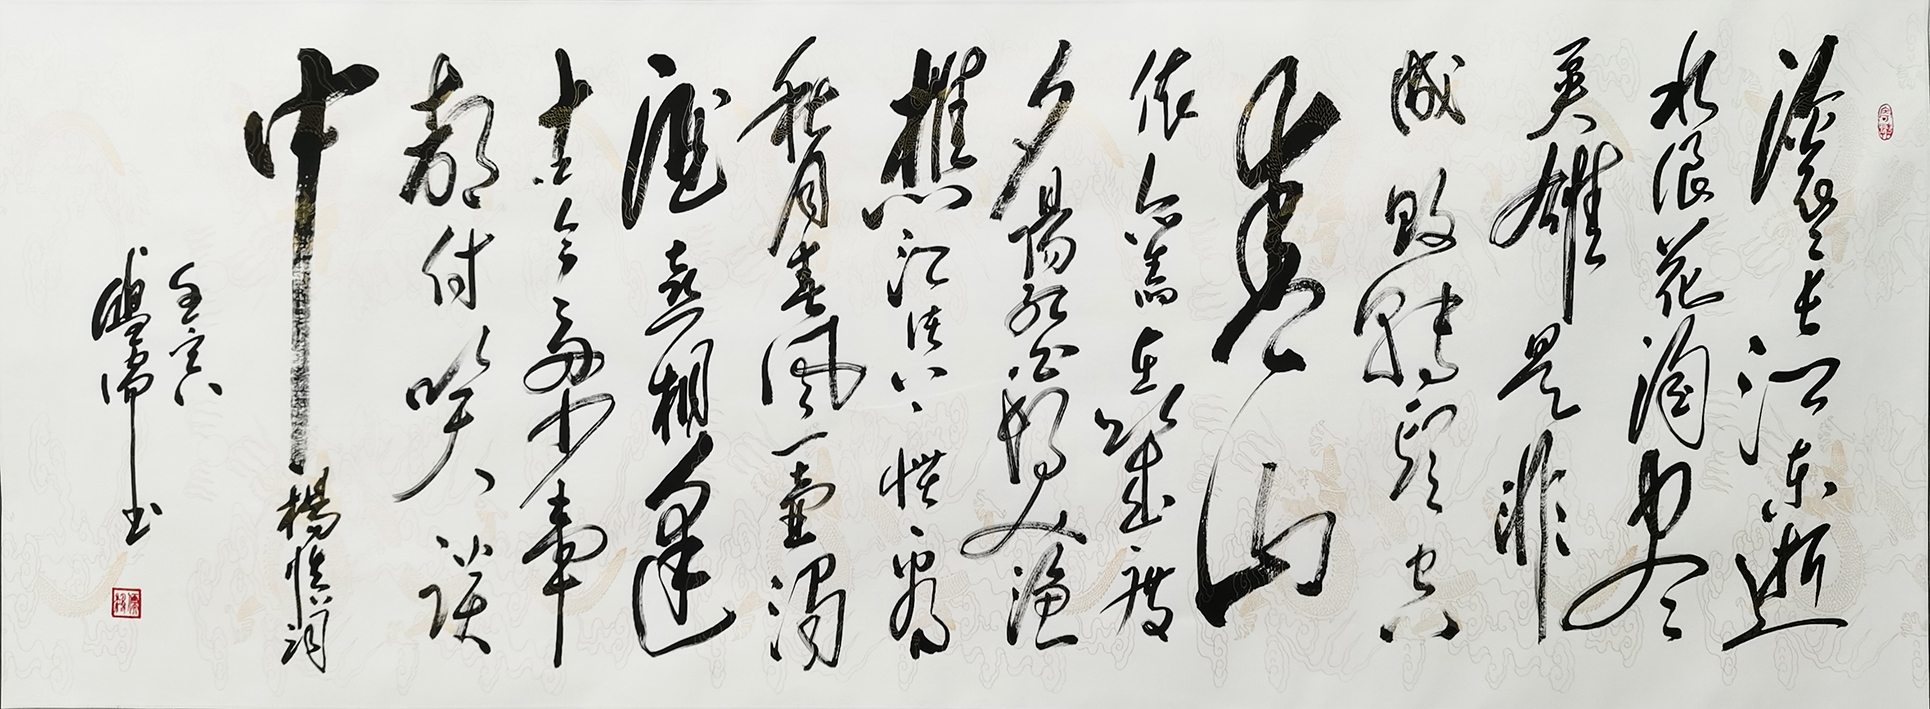 滚滚长江东逝
水浪花淘尽
英雄是非
成败转头空
青山
依旧在几度
夕阳红白发渔
樵江渚上惯看
秋月春风一壶浊
酒喜相逢
古今多少事
都付笑谈
中 杨慎词
壬寅
书